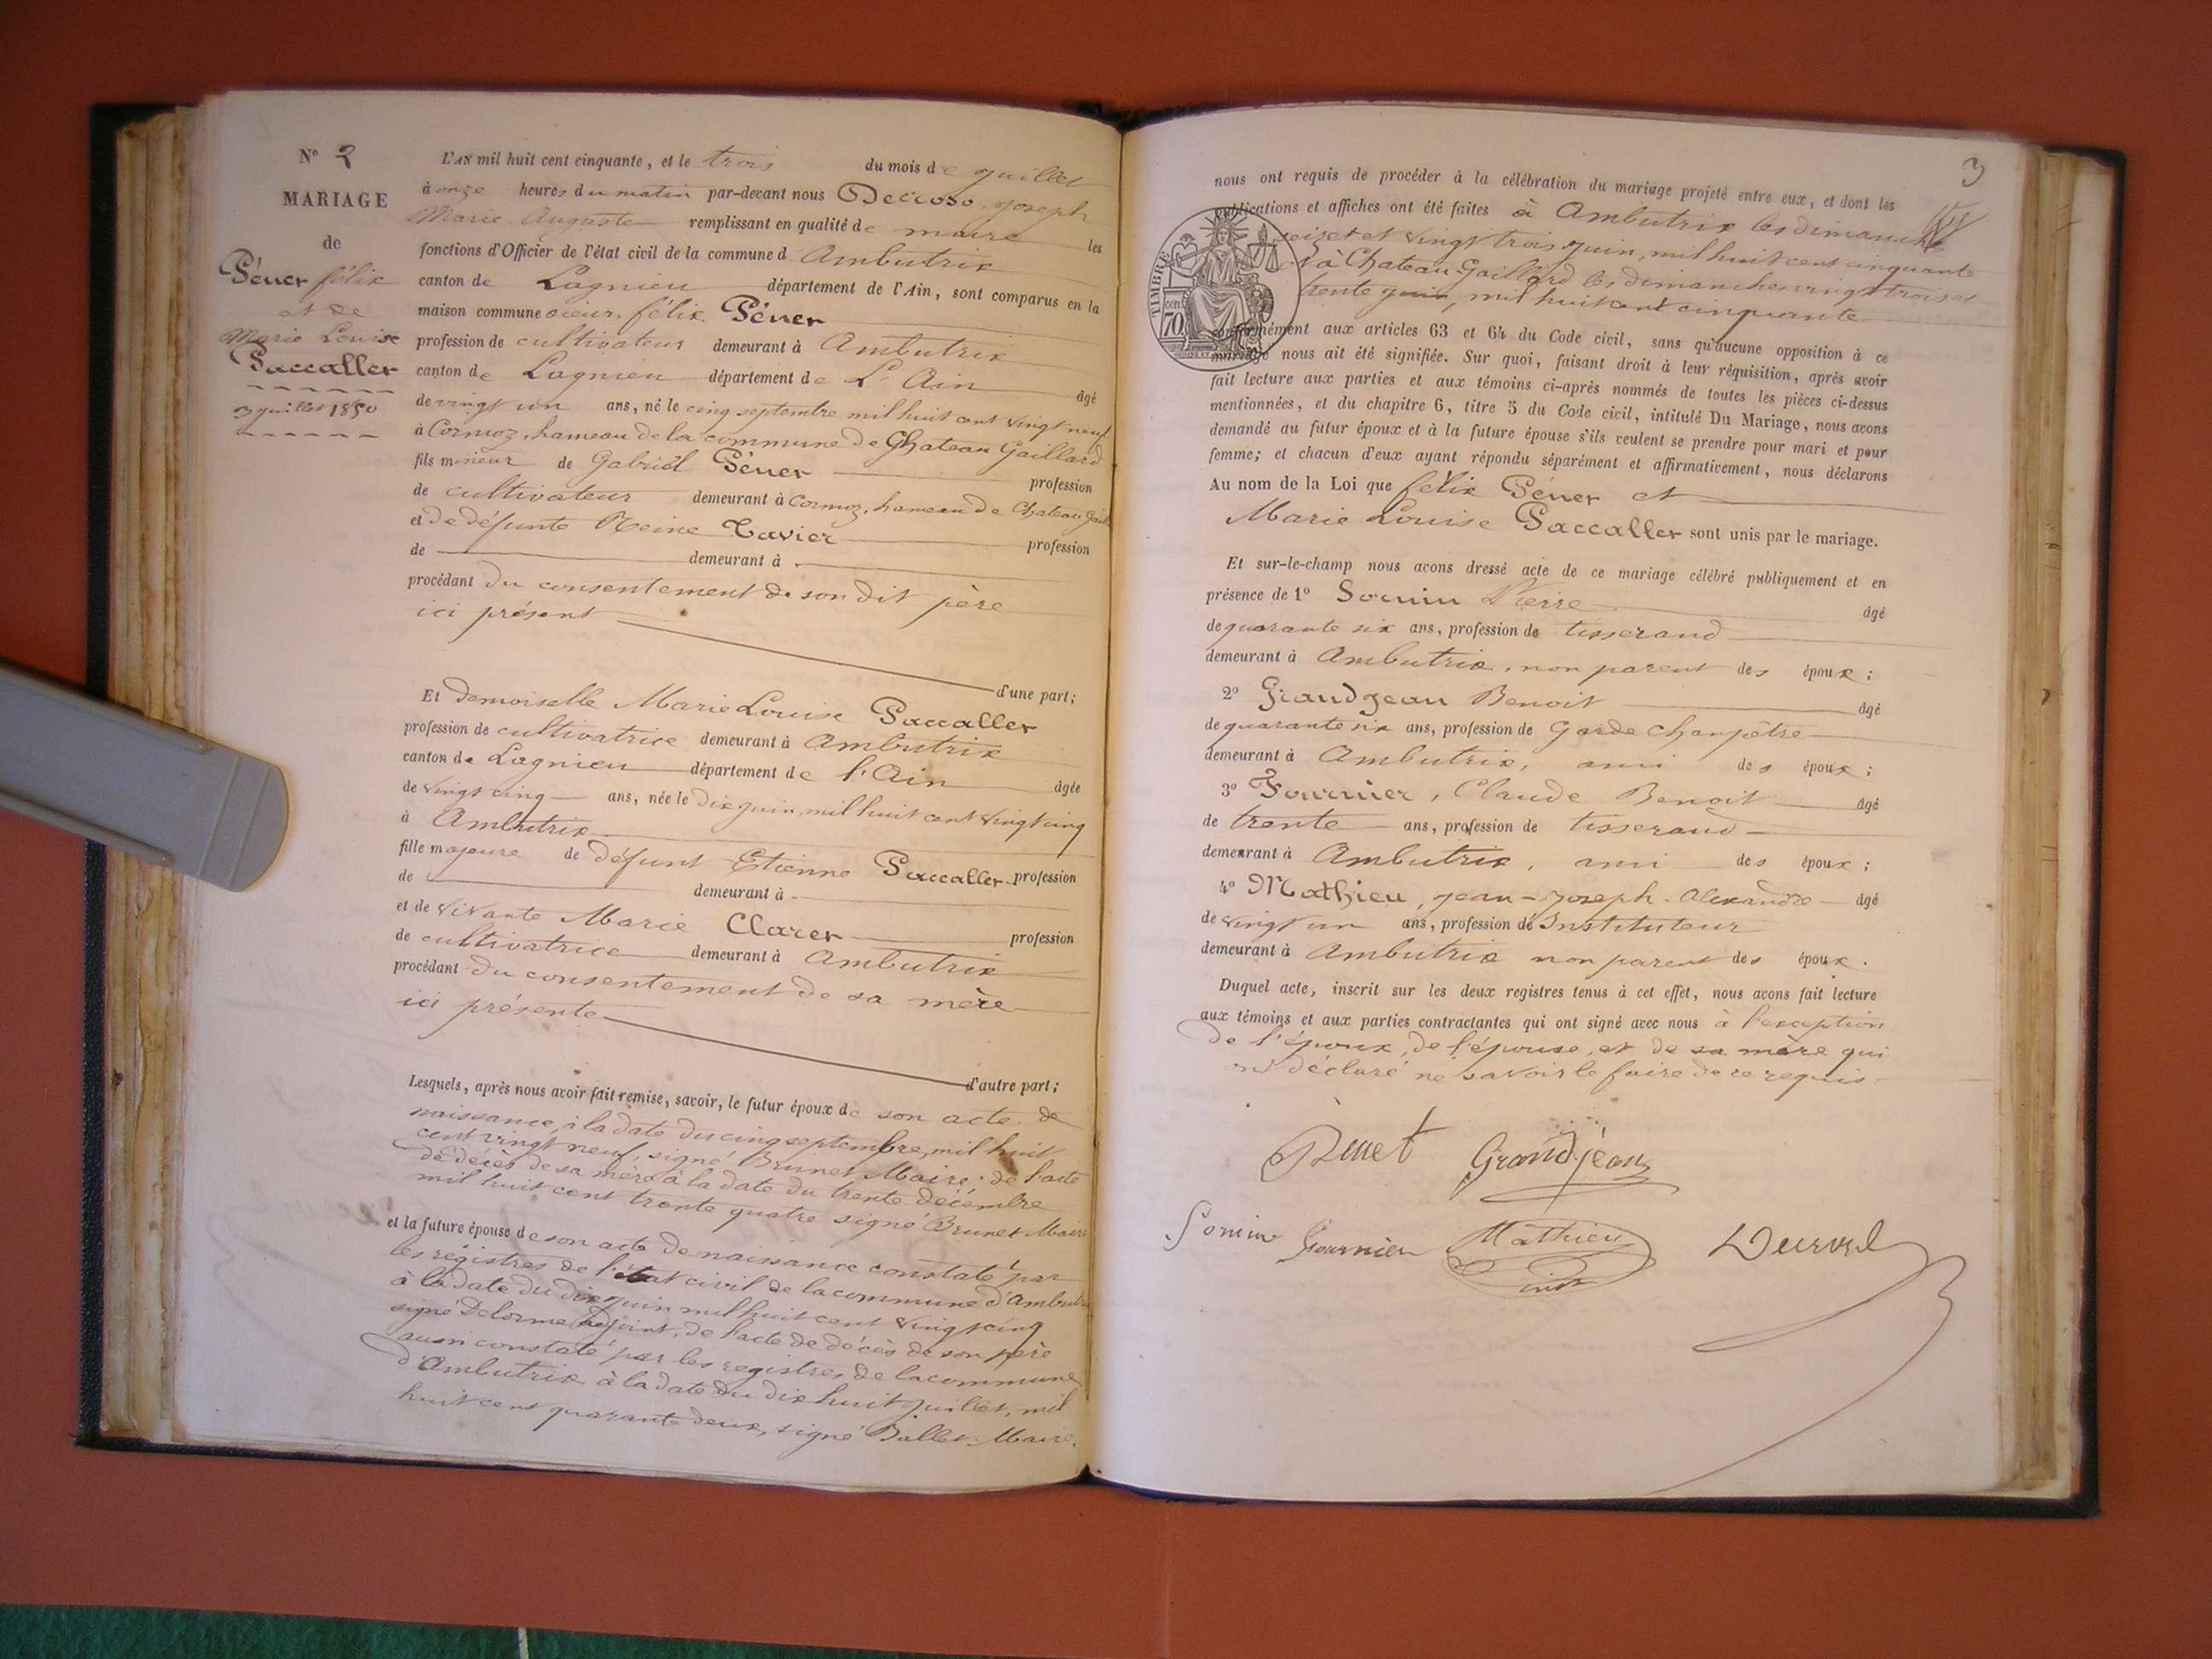 N° 2
MARIAGE
de
Péner félix
et de
Marie Louise
Paccaller
3 juillet 1850
L'AN mil huit cent cinquante, et le trois du mois de juillet
à onze heures du matin par-devant nous Joseph
Marie Auguste remplissant en qualité de maire les
fonctions d'Officier de l'état civil de la commune d Ambutrix
canton de Lagnieu département de l'Ain, sont comparus en la
maison commune sieur félix Péner
profession de cultivateur demeurant à Ambutrix
canton de Lagnieu département de L'Ain âgé
de vingt un ans, né le cinq septembre mil huit cent vingt neuf
à Cormoz, hameau de la commune de Chateau Gaillard
fils mineur de Gabriel Péner profession
de cultivateur demeurant à Cormoz, hameau de Chateau Gaill
et de défunte Reine Tavier profession
de demeurant à
procédant du consentement de son dit père
ici présent
d'une part;
Et demoiselle Marie Louise Paccaller
profession de cultivatrice demeurant à Ambutrix
canton de Lagnieu département de l'Ain âgée
de vingt cinq ans, née le dix juin, mil huit cent vingt cinq
à Ambutrix
fille majeure de défunt Etienne Paccaller profession
de demeurant à
et de vivante Marie Clarer profession
de cultivatrice demeurant à Ambutrix
procédant du consentement de sa mère
ici présente
d'autre part;
Lesquels, après nous avoir fait remise, savoir, le futur époux de son acte de
naissance, à la date du cinq septembre, mil huit
cent vingt neuf, signé Brunet Maire; de l'acte
de décès de sa mère à la date du trente décembre
mil huit cent trente quatre signé Brunet Maire
et la future épouse de son acte de naissance constaté par
les régistres de l'état civil de la commune d'Ambutrix
à la date du dix juin mil huit cent vingt cinq
signé Delorme adjoint, de l'acte de décès de son père
aussi constaté par les registres de la commune
d'Ambutrix à la date du dix huit juillet, mil
huit cent quarante deux, signé Ballet Maire.
3
nous ont requis de procéder à la célébration du mariage projeté entre eux, et dont les
publications et affiches ont été faites à Ambutrix les dimanche
seize et vingt trois juin, mil huit cent cinquante
à Chateau-Gaillard les dimanches vingt trois et
trente juin, mil huit cent cinquante
TIMBRE
70 cent
conformément aux articles 63 et 64 du Code civil, sans qu'aucune opposition à ce
mariage nous ait été signifiée. Sur quoi, faisant droit à leur réquisition, après avoir
fait lecture aux parties et aux témoins ci-après nommés de toutes les pièces ci-dessus
mentionnées, et du chapitre 6, titre 5 du Code civil, intitulé Du Mariage, nous avons
demandé au futur époux et à la future épouse s'ils veulent se prendre pour mari et pour
femme; et chacun d'eux ayant répondu séparément et affirmativement, nous déclarons
Au nom de la Loi que félix Péner et
Marie Louise Paccaller sont unis par le mariage.
Et sur-le-champ nous avons dressé acte de ce mariage célébré publiquement et en
présence de 1° Somin Pierre âgé
de quarante six ans, profession de tisserand
demeurant à Ambutrix, non parent des époux;
2° Grandjean Benoit âgé
de quarante six ans, profession de Garde Champêtre
demeurant à Ambutrix, ami des époux;
3° Fournier, Claude Benoit âgé
de trente ans, profession de tisserand
demeurant à Ambutrix, ami des époux;
4° Mathieu, Jean-Joseph-Alexandre âgé
de vingt un ans, profession de Instituteur
demeurant à Ambutrix non parent des époux.
Duquel acte, inscrit sur les deux registres tenus à cet effet, nous avons fait lecture
aux témoins et aux parties contractantes qui ont signé avec nous à l'exception
de l'époux, de l'épouse, et de sa mère qui
ont déclaré ne savoir le faire de ce requis.
Grandjean
Somin Fournier Mathieu
inst